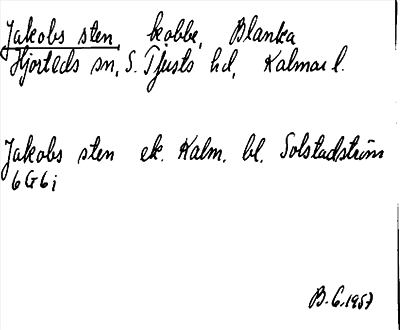 Jakobs sten, kobbe, Blanka
Hjorteds sn, S. Tjusts hd, Kalmar l.
Jakobs sten ek. Kalm. bl. Solstadström
6G6i
B.G. 1957